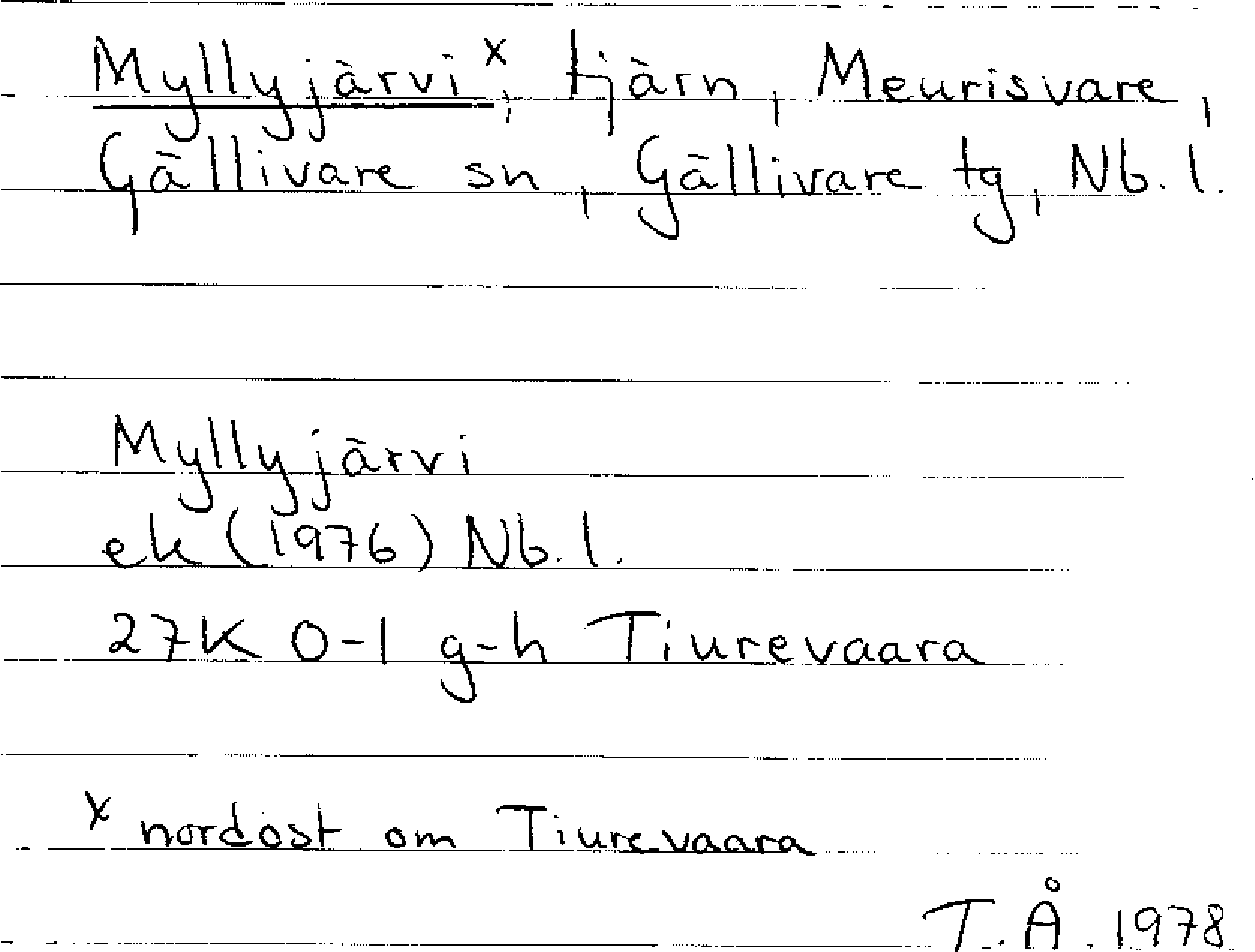 Myllyjärvi x, tjärn, Meurisvare,
Gällivare sn, Gällivare tg, Nb. l.
Myllyjärvi
ek (1976) Nb. l.
27K 0-1 g-h Tiurevaara
x nordost om Tiurevaara
T. Å. 1978